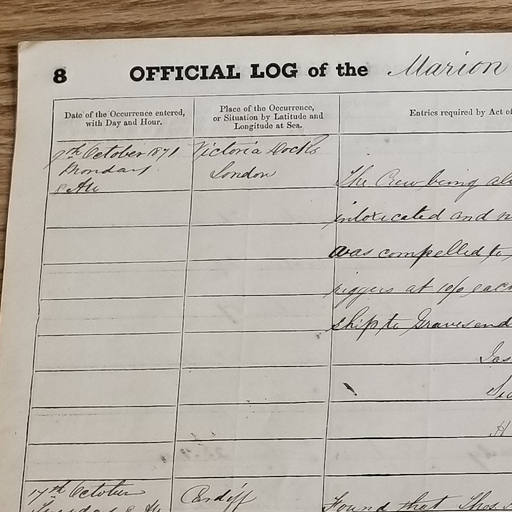 8 OFFICIAL LOG of the Marion
Date of the Occurrence entered, with Day and Hour.
Place of the Occurrence, or Situation by Latitude and Longitude at Sea.
Entries required by Act of
9th October 1871
Monday
8 AM
Victoria Docks
London
The Crew being
intoxicated and
was compelled to
riggers at
ship to Gravesend
17th October
Cardiff
Found that Thos